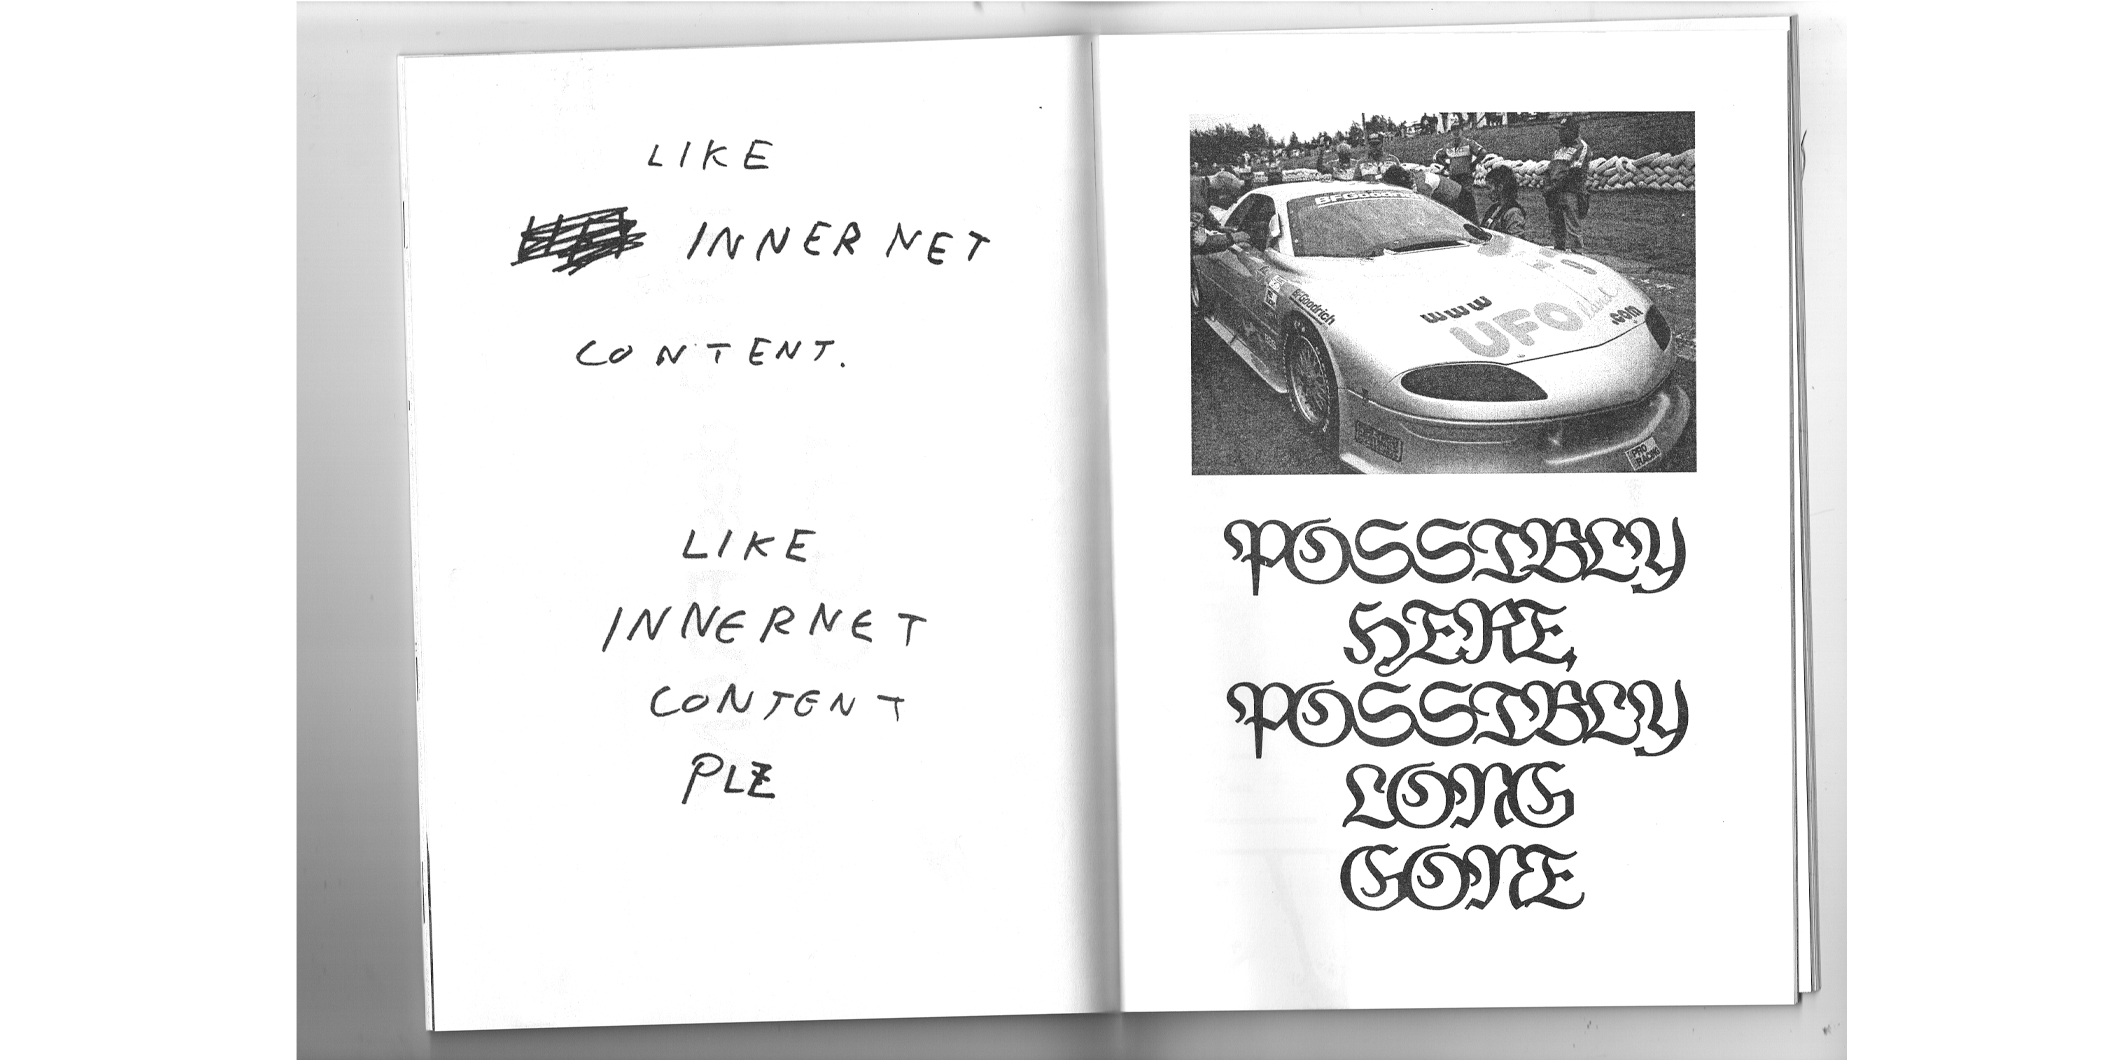 LIKE
INNERNET
CONTENT.
LIKE
INNERNET
CONTENT
PLZ
BFGoodrich
BFGoodrich
www
UFO
.com
PRO
RACING
POSSIBLY
HERE,
POSSIBLY
LONG
GONE